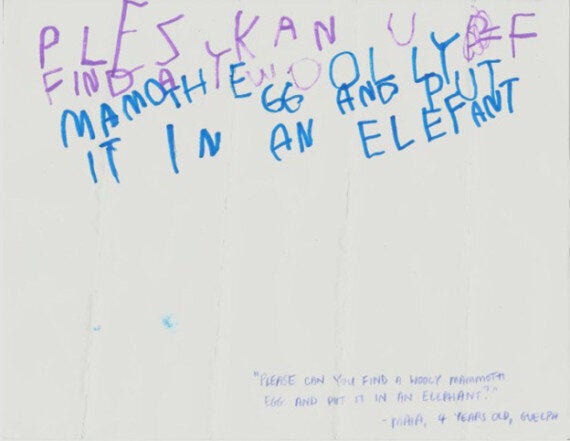 PLES KAN U
FIND A WOOLLY
MAMOTH EGG AND PUT
IT IN AN ELEFANT
"PLEASE CAN YOU FIND A WOOLY MAMMOTH
EGG AND PUT IT IN AN ELEPHANT?"
- MAIA, 4 YEARS OLD, GUELPH